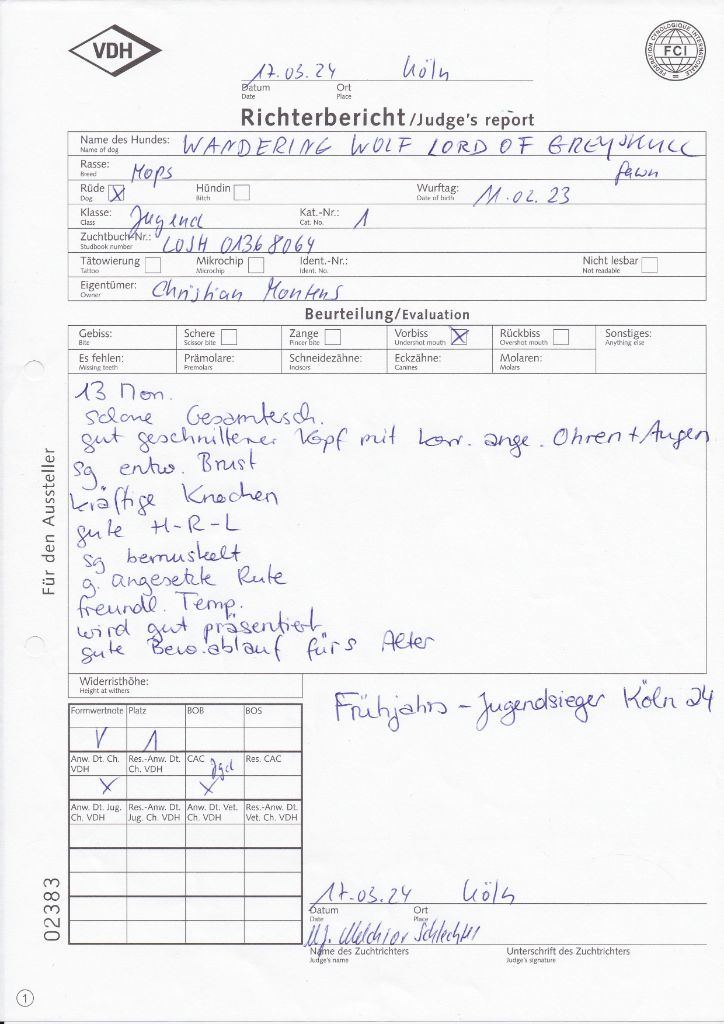 VDH
FEDERATION CYNOLOGIQUE INTERNATIONALE
FCI
17.03.24 Köln
Datum Ort
Date Place
Richterbericht/Judge's report
Name des Hundes: WANDERING WOLF LORD OF GREYSKULL
Name of dog
Rasse: Mops fawn
Breed
Rüde X Hündin Wurftag: 11.02.23
Dog Bitch Date of birth
Klasse: Jugend Kat.-Nr.: 1
Class Cat. No.
Zuchtbuch-Nr.: LOSH 01368064
Studbook number
Tätowierung Mikrochip Ident.-Nr.: Nicht lesbar
Tattoo Microchip Ident. No. Not readable
Eigentümer: Christian Montens
Owner
Beurteilung/Evaluation
Gebiss: Schere Zange Vorbiss X Rückbiss Sonstiges:
Bite Scissor bite Pincer bite Undershot mouth Overshot mouth Anything else
Es fehlen: Prämolare: Schneidezähne: Eckzähne: Molaren:
Missing teeth Premolars Incisors Canines Molars
13 Mon.
schöne Gesamtesch.
gut geschnittener Kopf mit korr. ange. Ohren + Augen
sg entw. Brust
kräftige Knochen
gute H-R-L
sg bemuskelt
g. angesetzte Rute
freundl. Temp.
wird gut präsentiert
gute Bew.ablauf fürs Alter
Für den Aussteller
Widerristhöhe:
Height at withers
Frühjahrs - Jugendsieger Köln 24
Formwertnote Platz BOB BOS
V 1
Anw. Dt. Ch. VDH Res.-Anw. Dt. Ch. VDH CAC Jgd Res. CAC
X X
Anw. Dt. Jug. Ch. VDH Res.-Anw. Dt. Jug. Ch. VDH Anw. Dt. Vet. Ch. VDH Res.-Anw. Dt. Vet. Ch. VDH
02383
17.03.24 Köln
Datum Ort
Date Place
Melchior Schlechter
Name des Zuchtrichters Unterschrift des Zuchtrichters
Judge's name Judge's signature
1